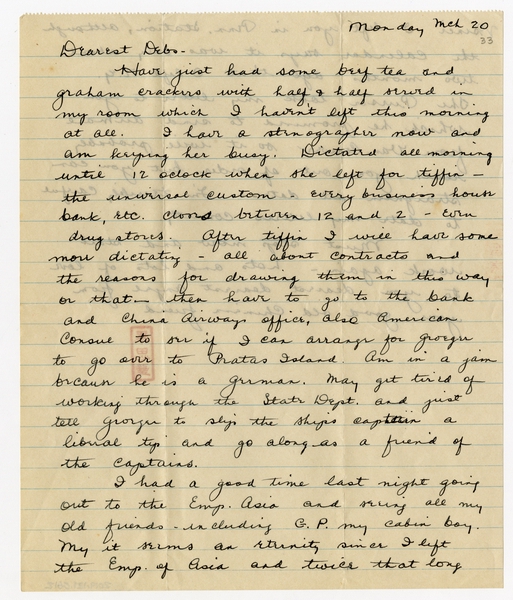 Monday Mch 20
33
Dearest Debs-
Have just had some beef tea and
graham crackers with half & half served in
my room which I haven't left this morning
at all. I have a stenographer now and
am keeping her busy. Dictated all morning
until 12 oclock when she left for tiffin -
the universal custom - every business house
bank, etc. closes between 12 and 2 - even
drug stores. After tiffin I will have some
more dictating - all about contracts and
the reasons for drawing them in this way
or that - then have to go to the bank
and China Airways office, also American
Consul to see if I can arrange for George
to go over to Pratas Island. Am in a jam
because he is a German. May get tired of
working through the State Dept. and just
tell George to slip the ships captain a
liberal tip and go along as a friend of
the captains.
I had a good time last night going
out to the Emp. Asia and seeing all my
old friends - including G.P. my cabin boy.
My it seems an eternity since I left
the Emp. of Asia and twice that long